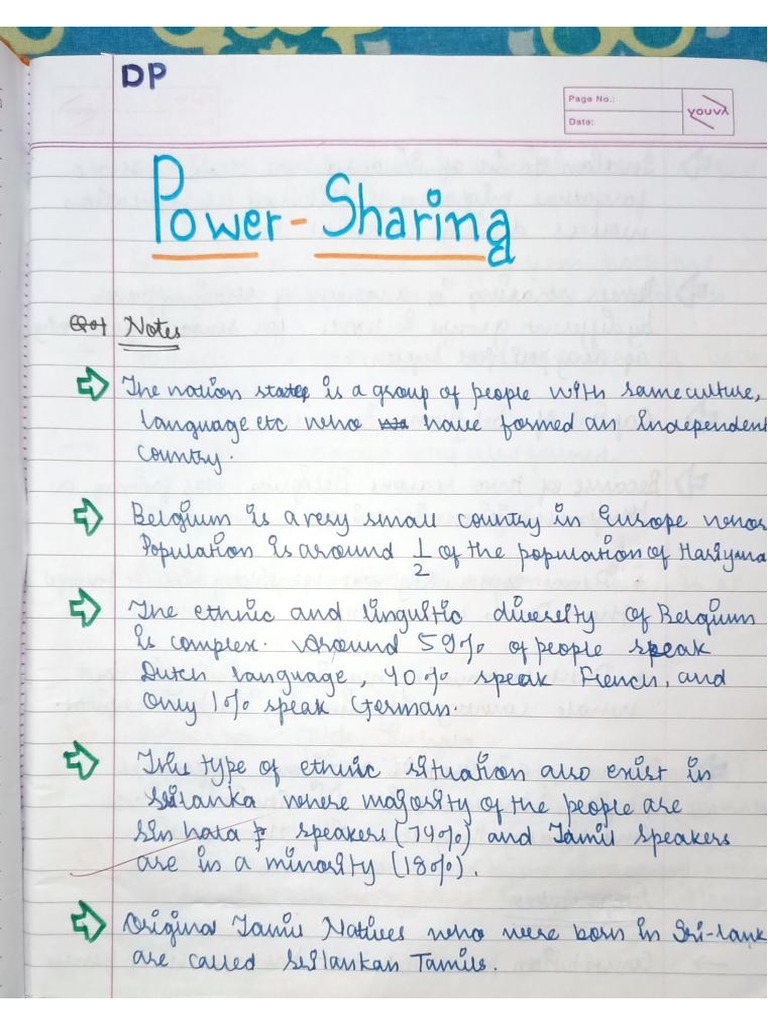 DP
Page No.:
Date:
youva
Power-Sharing
Q01 Notes
The nation state is a group of people with same culture,
language etc who have formed an independent
country.
Belgium is a very small country in Europe whose
Population is around 1/2 of the population of Hariyana
The ethnic and linguitic diversity of Belgium
is complex. Around 59% of people speak
Dutch language 40% speak French, and
Only 1% speak German.
This type of ethnic situation also exist in
Srilanka where majority of the people are
Sinhala speakers (74%) and Tamil speakers
are in a minority (18%).
Original Tamil Natives who were born in Sri-lank
are called Srilankan Tamils.